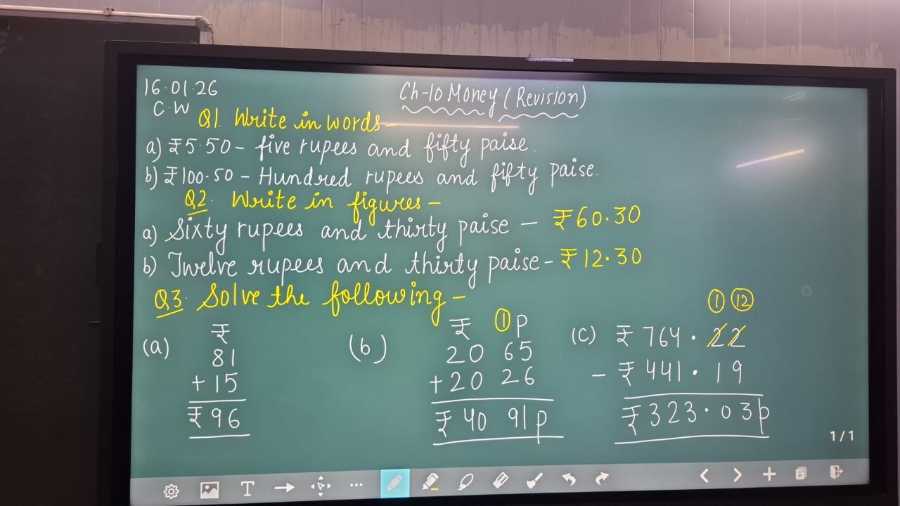 16.01.26 Ch-10 Money (Revision)
C.W
Q1. Write in words-
a) ₹5.50 - five rupees and fifty paise.
b) ₹100.50 - Hundred rupees and fifty paise.
Q2. Write in figures -
a) Sixty rupees and thirty paise - ₹60.30
b) Twelve rupees and thirty paise - ₹12.30
Q3. Solve the following -
(a)
₹
81
+ 15
₹96
(b)
₹ 1 p
20 65
+20 26
₹ 40 91p
(c)
1 12
₹ 764.22
- ₹441.19
₹323.03p
1/1
T